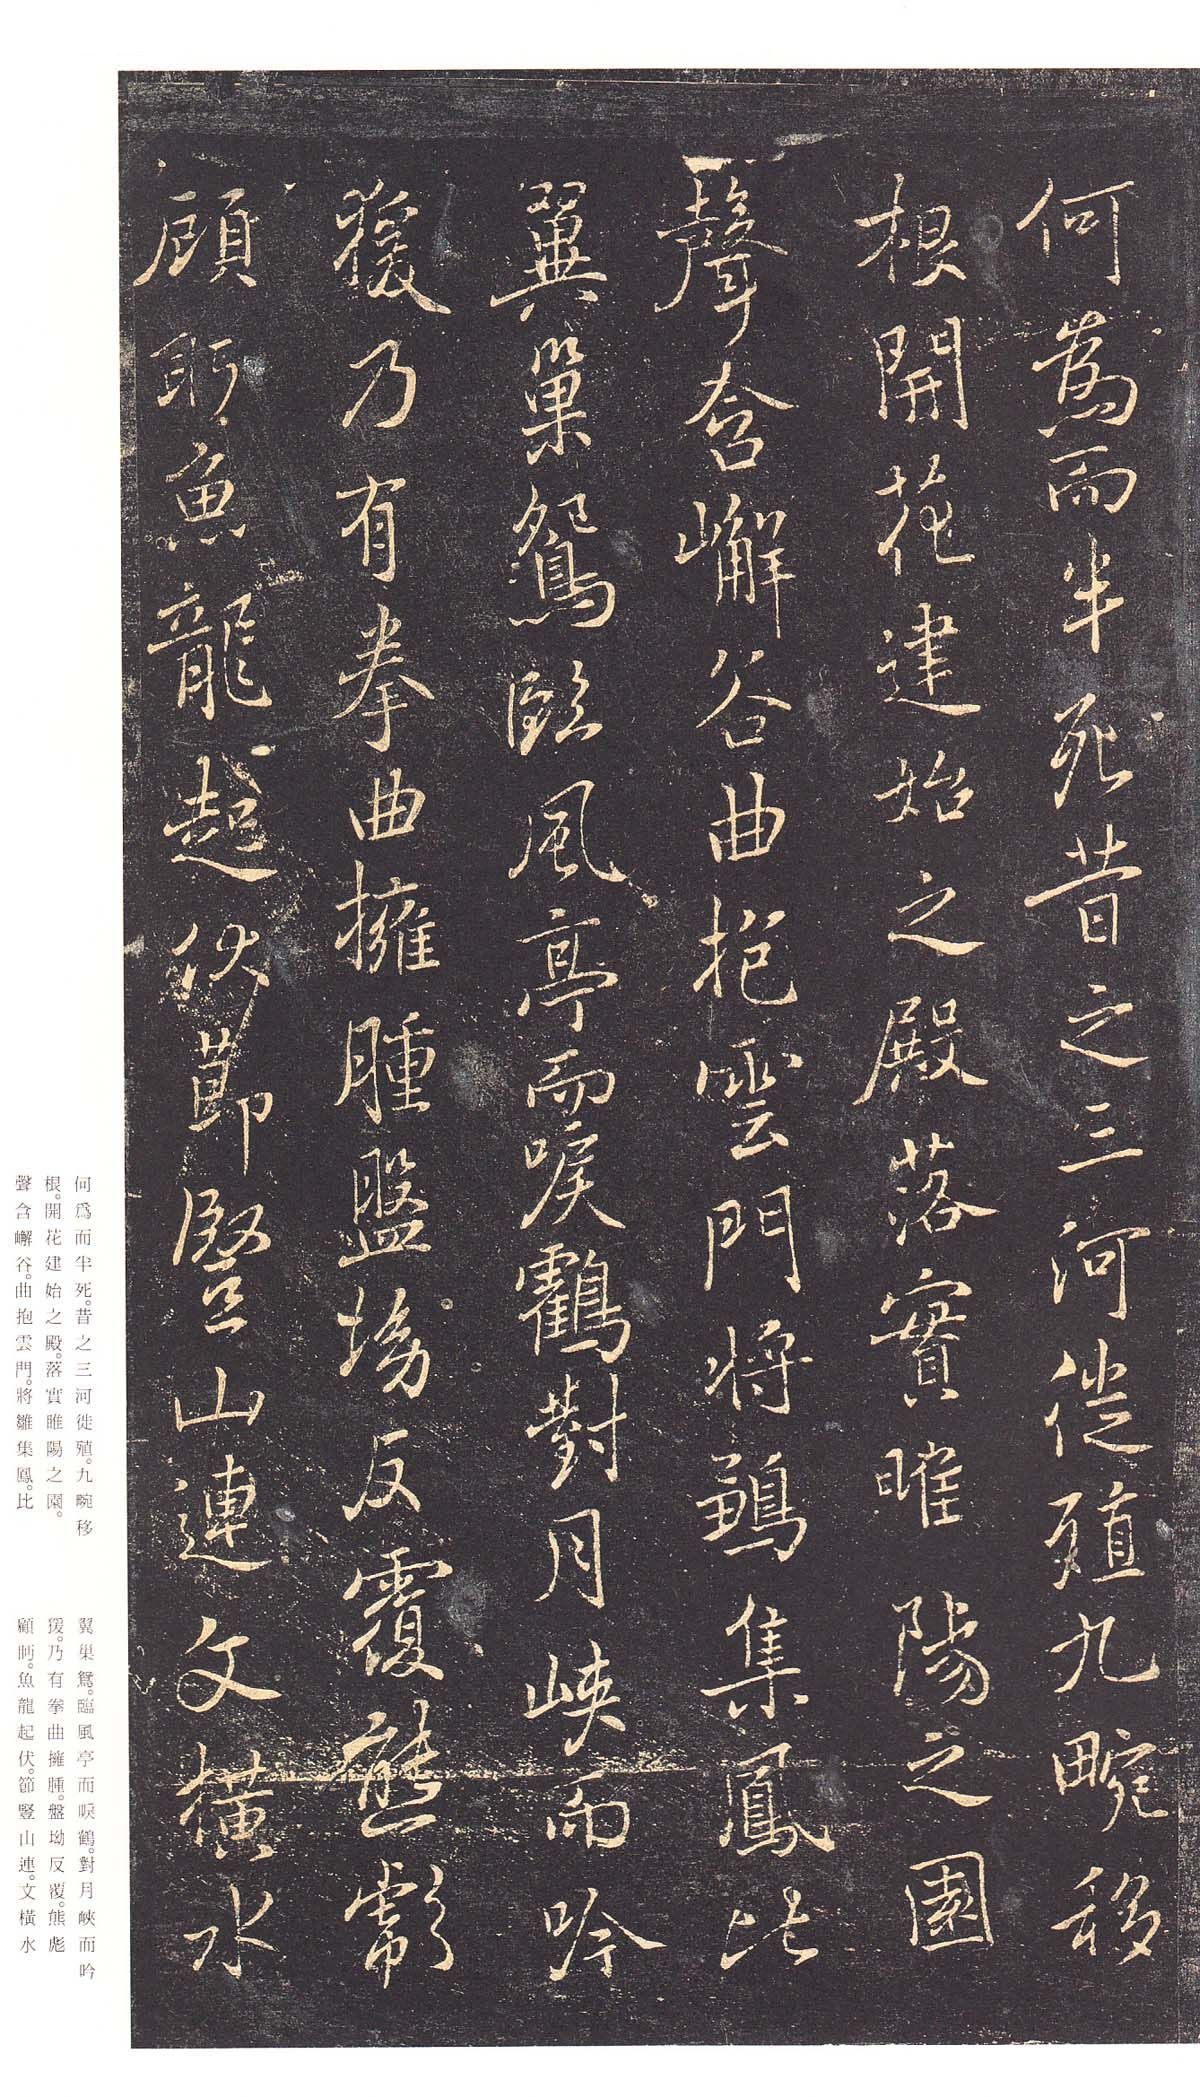 何爲而半死昔之三河徙殖九畹移
根開花建始之殿落實睢陽之園
聲含嶰谷曲抱雲門將雛集鳳比
翼巢鴛臨風亭而唳鶴對月峽而吟
猨乃有拳曲擁腫盤坳反覆熊彪
顧眄魚龍起伏節豎山連文橫水
何爲而半死。昔之三河徙殖。九畹移
根。開花建始之殿。落實睢陽之園。
聲含嶰谷。曲抱雲門。將雛集鳳。比
翼巢鴛。臨風亭而唳鶴。對月峽而吟
猨。乃有拳曲擁腫。盤坳反覆。熊彪
顧眄。魚龍起伏。節豎山連。文橫水